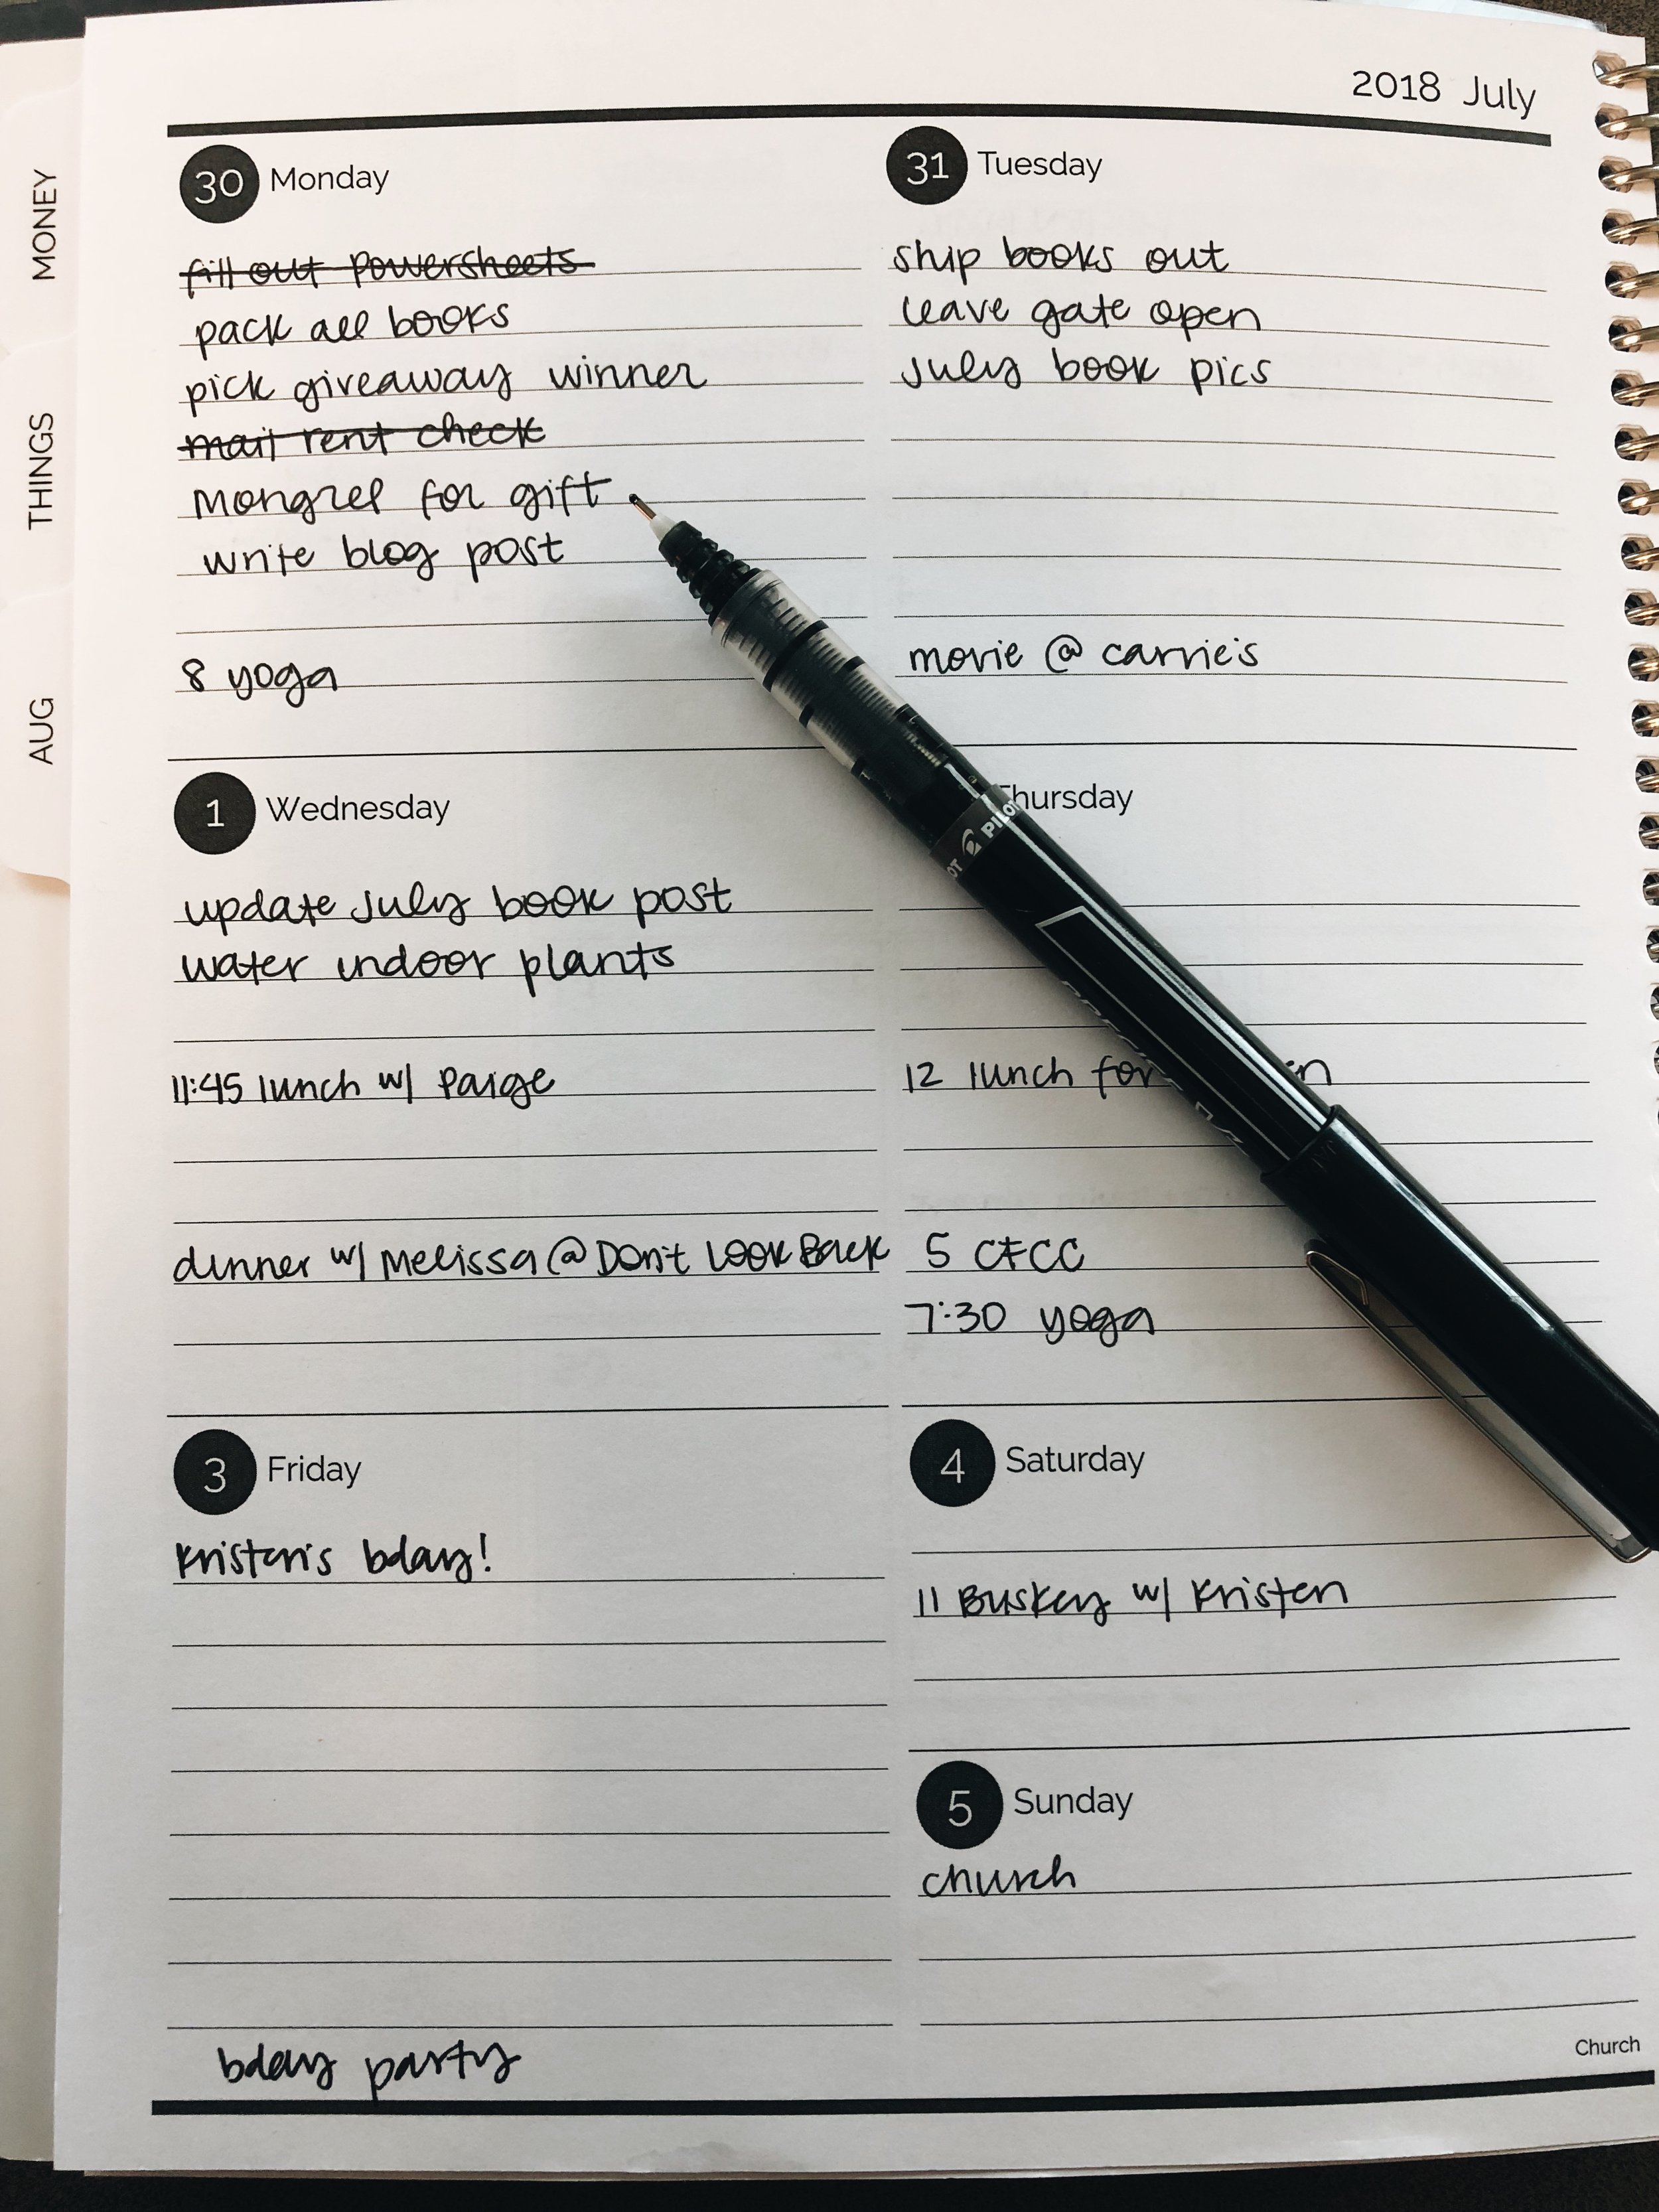 2018 July
MONEY
THINGS
AUG
30 Monday
fill out powersheets
pack all books
pick giveaway winner
mail rent check
Mongrel for gift
write blog post
8 yoga
31 Tuesday
ship books out
leave gate open
July book pics
movie @ carrie's
1 Wednesday
update July book post
water indoor plants
11:45 lunch w/ Paige
dinner w/ Melissa @ Don't Look Back
Thursday
12 lunch for
5 CFCC
7:30 yoga
PILOT
3 Friday
Kristen's bday!
bday party
4 Saturday
11 Buskey w/ Kristen
5 Sunday
church
Church